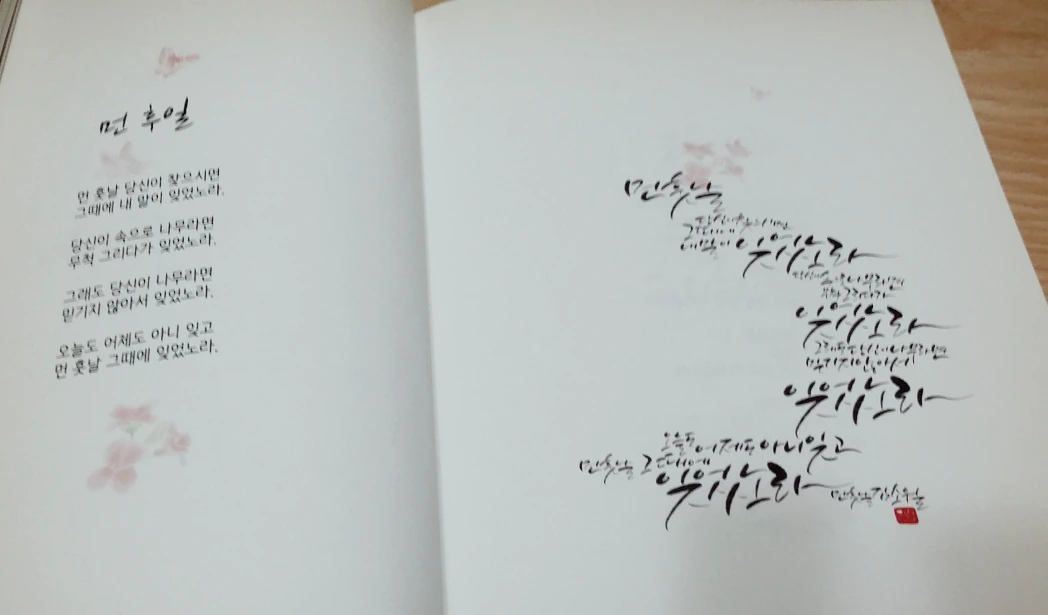 먼 후일
먼 훗날 당신이 찾으시면
그때에 내 말이 잊었노라.
당신이 속으로 나무라면
무척 그리다가 잊었노라.
그래도 당신이 나무라면
믿기지 않아서 잊었노라.
오늘도 어제도 아니 잊고
먼 훗날 그때에 잊었노라.
먼훗날
당신이 찾으시면
그때에
내말이 잊었노라
당신이 속으로 나무라면
무척 그리다가
잊었노라
그래도 당신이 나무라면
믿기지 않아서
잊었노라
오늘도 어제도 아니 잊고
먼훗날 그때에
잊었노라
먼훗날 김소월